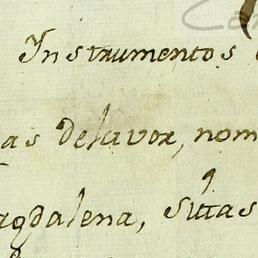 Instrumentos
as delavor, nom
agdalena, sitas